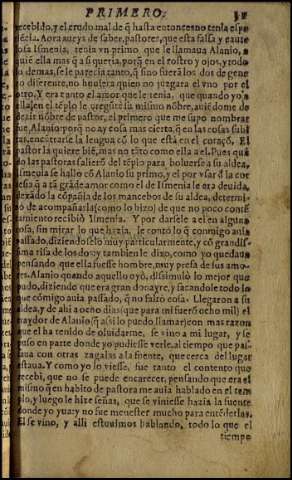 PRIMERO.
recebido, y el crudo mal de q̃ hasta entonces no tenia espe
riẽcia. Aora aueys de saber, pastores, que esta falsa y caute
losa Ismenia, tenia vn primo, que se llamaua Alanio, a
quiẽ ella mas q̃ a si queria, porq̃ en el rostro y ojos, y todo
lo demas, se le parecia tanto, q̃ sino fuerã los dos de gene
ro diferente, no houiera quien no juzgara el vno por el
otro. Y era tanto el amor que le tenia, que quando yo a
ella en el tẽplo le pregũte su mismo nõbre, auiẽdome de
dezir nõbre de pastor, el primero que me supo nombrar
fue, Alanio: porq̃ no ay cosa mas cierta, q̃ en las cosas subi
tas, encõtrarse la lengua cõ lo que està en el coraçõ. El
pastor la quiere biẽ, mas no tãto como ella a el. Pues quã
do las pastoras saliero del tẽplo para boluerse a su aldea,
Ismenia se hallo cõ Alanio su primo, y el por vsar d̃ la cor
tesia q̃ a tã grãde amor como el de Ismenia le era deuida,
dexãdo la cõpañia de los mancebos de su aldea, determi
nò de acompañarla (como lo hizo) de que no poco conte
tamiento recibiò Ismenia. Y por darsele a el en alguna
cosa, sin mirar lo que hazia, le contò lo q̃ conmigo auia
passado, diziendoselo muy particularmente, y cõ grandis
sima risa de los dos: y tambien le dixo, como yo quedaua
pensando que ella fuesse hombre, muy presa de sus amo-
res. Alanio quando aquello oyò, dissimulò lo mejor que
pudo, diziendo que era gran donayre, y sacandole todo lo
que cõmigo auia passado, q̃ no faltò cosa. Llegaron a su
aldea, y de ahi a ocho dias (que para mi fuerõ ocho mil) el
traydor de Alanio (q̃ assi lo puedo llamar, con mas razon
que el ha tenido de oluidarme, se vino a mi lugar, y se
puso en parte donde yo pudiesse verle, al tiempo que pas-
saua con otras zagalas a la fuente, que cerca del lugar
estaua. Y como yo lo viesse, fue tanto el contento que
recebi, que no se puede encarecer, pensando que era el
mismo q̃ en habito de pastora me auia hablado en el tem
plo, y luego le hize señas, que se viniesse hazia la fuente
donde yo yua: y no fue menester mucho para entẽderlas.
El se vino, y alli estuuimos hablando, todo lo que el
tiempo